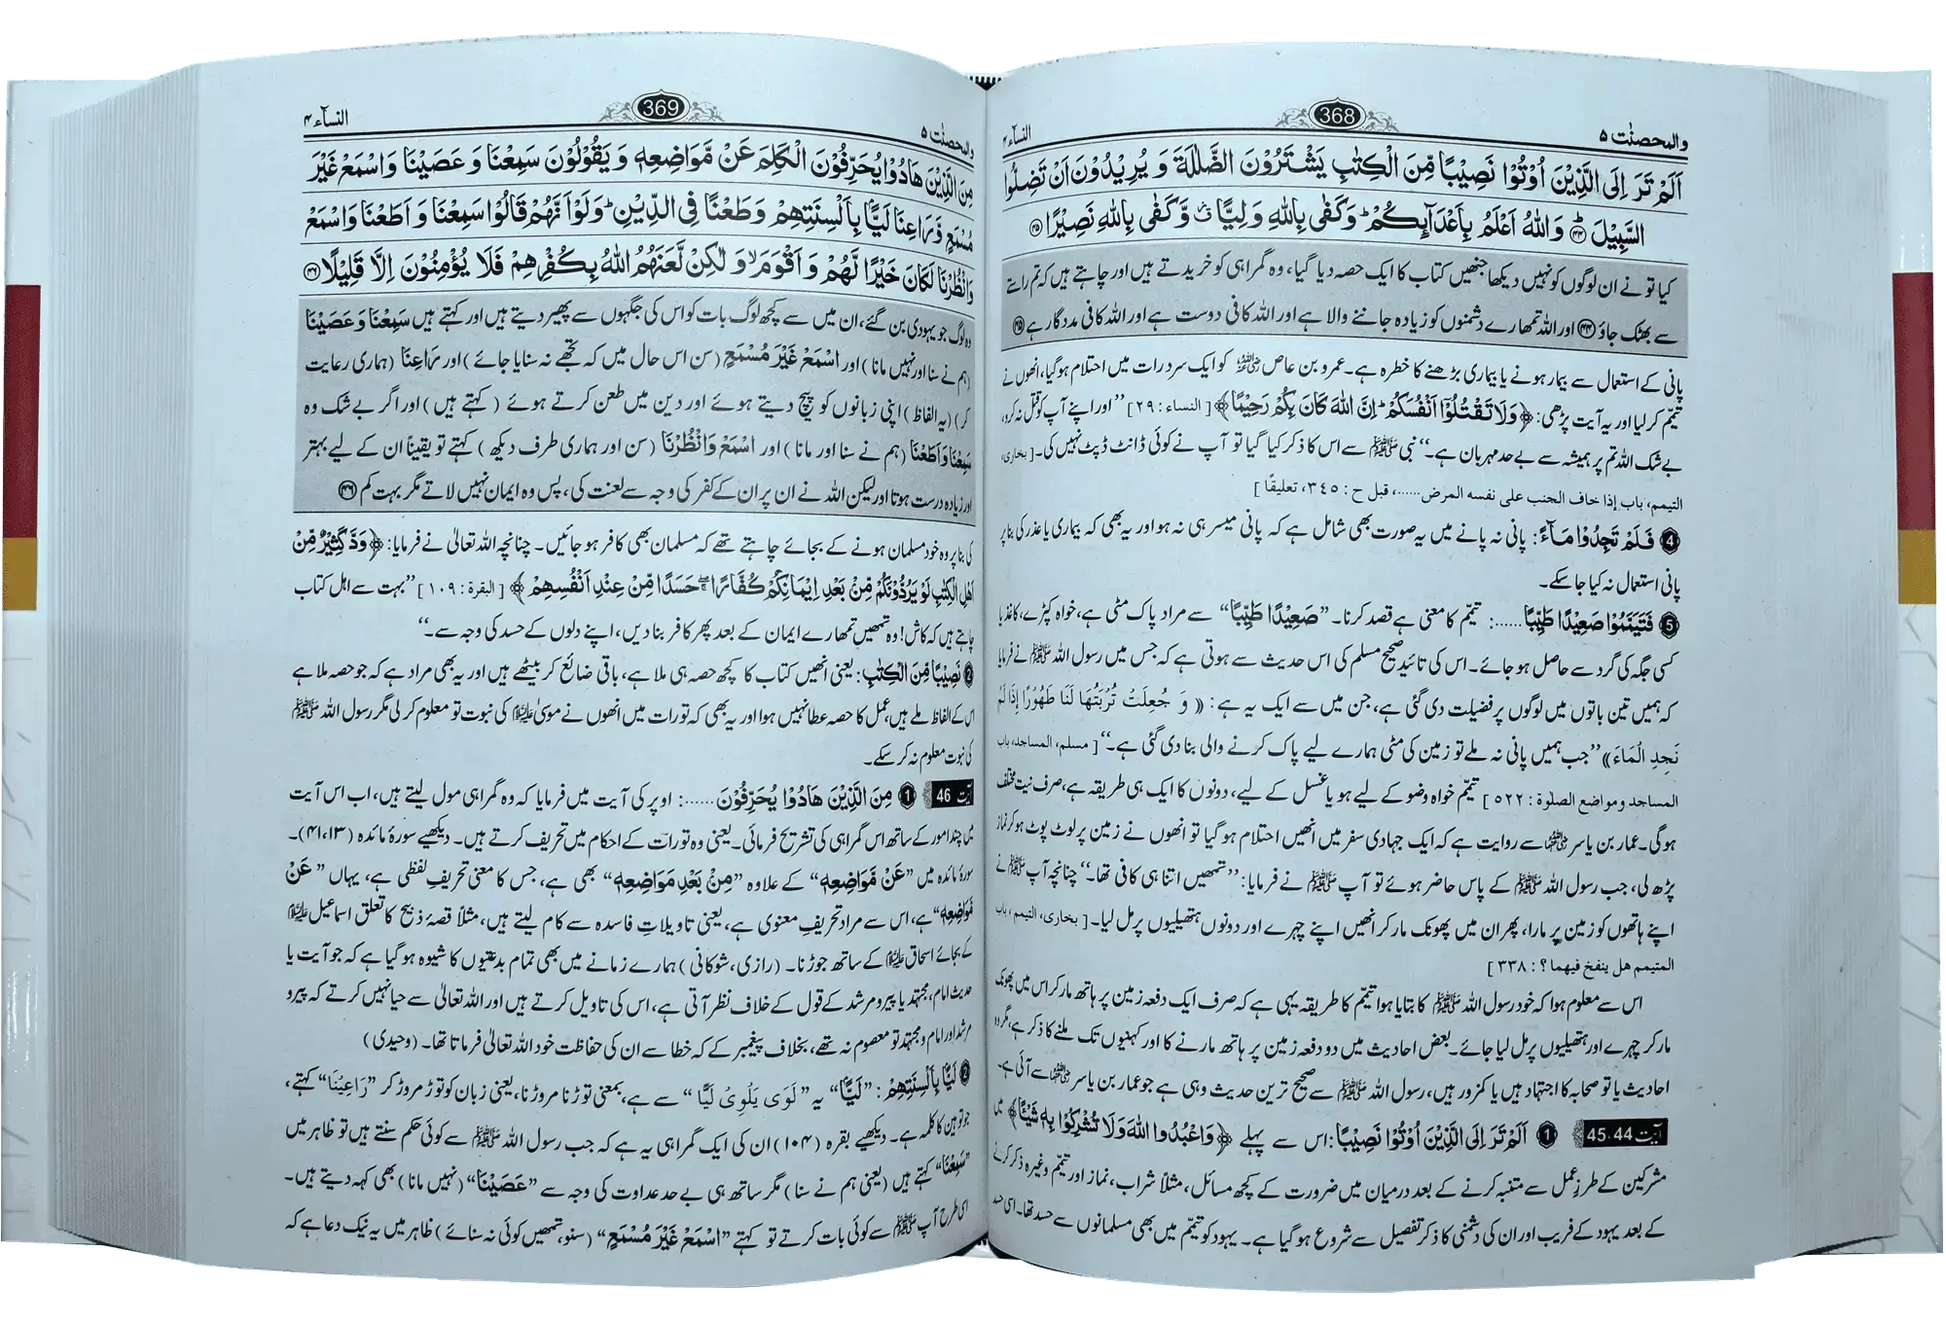 والمحصنٰت ۵
368
النسآء ۴
اَلَمْ تَرَ اِلَى الَّذِيْنَ اُوْتُوْا نَصِيْبًا مِّنَ الْكِتٰبِ يَشْتَرُوْنَ الضَّلٰلَةَ وَ يُرِيْدُوْنَ اَنْ تَضِلُّوا
السَّبِيْلَ ﴿۴۴﴾ وَاللّٰهُ اَعْلَمُ بِاَعْدَآىِٕكُمْ ؕ وَكَفٰى بِاللّٰهِ وَلِيًّا ۙ وَّكَفٰى بِاللّٰهِ نَصِيْرًا ﴿۴۵﴾
کیا تو نے ان لوگوں کو نہیں دیکھا جنھیں کتاب کا ایک حصہ دیا گیا، وہ گمراہی کو خریدتے ہیں اور چاہتے ہیں کہ تم راستے
سے بھٹک جاؤ ﴿۴۴﴾ اور اللہ تمھارے دشمنوں کو زیادہ جاننے والا ہے اور اللہ کافی دوست ہے اور اللہ کافی مددگار ہے ﴿۴۵﴾
پانی کے استعمال سے بیمار ہونے یا بیماری بڑھنے کا خطرہ ہے۔ عمرو بن عاص رضی اللہ عنہ کو ایک سرد رات میں احتلام ہو گیا، انھوں نے
تیمّم کر لیا اور یہ آیت پڑھی: ﴿وَلَا تَقْتُلُوْۤا اَنْفُسَكُمْ ؕ اِنَّ اللّٰهَ كَانَ بِكُمْ رَحِيْمًا﴾ [النساء : ۲۹] ”اور اپنے آپ کو قتل نہ کرو،
بے شک اللہ تم پر ہمیشہ سے بے حد مہربان ہے۔“ نبی ﷺ سے اس کا ذکر کیا گیا تو آپ نے کوئی ڈانٹ ڈپٹ نہیں کی۔ [بخاری،
التیمم، باب إذا خاف الجنب علی نفسه المرض......، قبل ح : ۳٤٥، تعلیقًا]
4 فَلَمْ تَجِدُوْا مَآءً : پانی نہ پانے میں یہ صورت بھی شامل ہے کہ پانی میسر ہی نہ ہو اور یہ بھی کہ بیماری یا عذر کی بنا پر
پانی استعمال نہ کیا جا سکے۔
5 فَتَيَمَّمُوْا صَعِيْدًا طَيِّبًا......: تیمّم کا معنی ہے قصد کرنا۔ ”صَعِيْدًا طَيِّبًا“ سے مراد پاک مٹی ہے، خواہ کپڑے، کاغذ یا
کسی جگہ کی گرد سے حاصل ہو جائے۔ اس کی تائید صحیح مسلم کی اس حدیث سے ہوتی ہے کہ جس میں رسول اللہ ﷺ نے فرمایا
کہ ہمیں تین باتوں میں لوگوں پر فضیلت دی گئی ہے، جن میں سے ایک یہ ہے: « وَ جُعِلَتْ تُرْبَتُهَا لَنَا طَهُوْرًا إِذَا لَمْ
نَجِدِ الْمَاءَ » ”جب ہمیں پانی نہ ملے تو زمین کی مٹی ہمارے لیے پاک کرنے والی بنا دی گئی ہے۔“ [مسلم، المساجد، باب
المساجد ومواضع الصلوة : ٥٢٢] تیمّم خواہ وضو کے لیے ہو یا غسل کے لیے، دونوں کا ایک ہی طریقہ ہے، صرف نیت مختلف
ہو گی۔ عمار بن یاسر رضی اللہ عنہما سے روایت ہے کہ ایک جہادی سفر میں انھیں احتلام ہو گیا تو انھوں نے زمین پر لوٹ پوٹ ہو کر نماز
پڑھ لی، جب رسول اللہ ﷺ کے پاس حاضر ہوئے تو آپ ﷺ نے فرمایا: ”تمھیں اتنا ہی کافی تھا۔“ چنانچہ آپ ﷺ نے
اپنے ہاتھوں کو زمین پر مارا، پھر ان میں پھونک مار کر انھیں اپنے چہرے اور دونوں ہتھیلیوں پر مل لیا۔ [بخاری، التیمم، باب
المتیمم هل ینفخ فیهما؟ : ۳۳۸]
اس سے معلوم ہوا کہ خود رسول اللہ ﷺ کا بتایا ہوا تیمّم کا طریقہ یہی ہے کہ صرف ایک دفعہ زمین پر ہاتھ مار کر اس میں پھونک
مار کر چہرے اور ہتھیلیوں پر مل لیا جائے۔ بعض احادیث میں دو دفعہ زمین پر ہاتھ مارنے کا اور کہنیوں تک ملنے کا ذکر ہے، مگر وہ
احادیث یا تو صحابہ کا اجتہاد ہیں یا کمزور ہیں، رسول اللہ ﷺ سے صحیح ترین حدیث وہی ہے جو عمار بن یاسر رضی اللہ عنہما سے آئی ہے۔
آیت 44، 45 1 اَلَمْ تَرَ اِلَى الَّذِيْنَ اُوْتُوْا نَصِيْبًا : اس سے پہلے ﴿وَاعْبُدُوا اللّٰهَ وَلَا تُشْرِكُوْا بِهٖ شَيْـًٔا﴾ میں
مشرکین کے طرزِ عمل سے متنبہ کرنے کے بعد درمیان میں ضرورت کے کچھ مسائل، مثلاً شراب، نماز اور تیمّم وغیرہ ذکر کرنے
کے بعد یہود کے فریب اور ان کی دشمنی کا ذکر تفصیل سے شروع ہو گیا ہے۔ یہود کو تیمّم میں بھی مسلمانوں سے حسد تھا۔ اسی حسد
والمحصنٰت ۵
369
النسآء ۴
مِنَ الَّذِيْنَ هَادُوْا يُحَرِّفُوْنَ الْكَلِمَ عَنْ مَّوَاضِعِهٖ وَ يَقُوْلُوْنَ سَمِعْنَا وَ عَصَيْنَا وَاسْمَعْ غَيْرَ
مُسْمَعٍ وَّ رَاعِنَا لَيًّۢا بِاَلْسِنَتِهِمْ وَ طَعْنًا فِى الدِّيْنِ ؕ وَلَوْ اَنَّهُمْ قَالُوْا سَمِعْنَا وَ اَطَعْنَا وَاسْمَعْ
وَانْظُرْنَا لَكَانَ خَيْرًا لَّهُمْ وَ اَقْوَمَ ۙ وَ لٰكِنْ لَّعَنَهُمُ اللّٰهُ بِكُفْرِهِمْ فَلَا يُؤْمِنُوْنَ اِلَّا قَلِيْلًا ﴿۴۶﴾
وہ لوگ جو یہودی بن گئے، ان میں سے کچھ لوگ بات کو اس کی جگہوں سے پھیر دیتے ہیں اور کہتے ہیں سَمِعْنَا وَ عَصَيْنَا
(ہم نے سنا اور نہیں مانا) اور اسْمَعْ غَيْرَ مُسْمَعٍ (سن اس حال میں کہ تجھے نہ سنایا جائے) اور رَاعِنَا (ہماری رعایت
کر) (یہ الفاظ) اپنی زبانوں کو پیچ دیتے ہوئے اور دین میں طعن کرتے ہوئے (کہتے ہیں) اور اگر بے شک وہ
سَمِعْنَا وَ اَطَعْنَا (ہم نے سنا اور مانا) اور اسْمَعْ وَانْظُرْنَا (سن اور ہماری طرف دیکھ) کہتے تو یقیناً ان کے لیے بہتر
اور زیادہ درست ہوتا اور لیکن اللہ نے ان پر ان کے کفر کی وجہ سے لعنت کی، پس وہ ایمان نہیں لاتے مگر بہت کم ﴿۴۶﴾
کی بنا پر وہ خود مسلمان ہونے کے بجائے چاہتے تھے کہ مسلمان بھی کافر ہو جائیں۔ چنانچہ اللہ تعالیٰ نے فرمایا: ﴿وَدَّ كَثِيْرٌ مِّنْ
اَهْلِ الْكِتٰبِ لَوْ يَرُدُّوْنَكُمْ مِّنْۢ بَعْدِ اِيْمَانِكُمْ كُفَّارًا ۖۚ حَسَدًا مِّنْ عِنْدِ اَنْفُسِهِمْ﴾ [البقرۃ : ۱۰۹] ”بہت سے اہل کتاب
چاہتے ہیں کہ کاش! وہ تمھیں تمھارے ایمان کے بعد پھر کافر بنا دیں، اپنے دلوں کے حسد کی وجہ سے۔“
2 نَصِيْبًا مِّنَ الْكِتٰبِ : یعنی انھیں کتاب کا کچھ حصہ ہی ملا ہے، باقی ضائع کر بیٹھے ہیں اور یہ بھی مراد ہے کہ جو حصہ ملا ہے
اس کے الفاظ ملے ہیں، عمل کا حصہ عطا نہیں ہوا اور یہ بھی کہ تورات میں انھوں نے موسیٰ علیہ السلام کی نبوت تو معلوم کر لی مگر رسول اللہ ﷺ
کی نبوت معلوم نہ کر سکے۔
آیت 46 1 مِنَ الَّذِيْنَ هَادُوْا يُحَرِّفُوْنَ......: اوپر کی آیت میں فرمایا کہ وہ گمراہی مول لیتے ہیں، اب اس آیت
میں چند امور کے ساتھ اس گمراہی کی تشریح فرمائی۔ یعنی وہ تورات کے احکام میں تحریف کرتے ہیں۔ دیکھیے سورۂ مائدہ (۱۳، ۴۱)۔
سورۂ مائدہ میں ”عَنْ مَّوَاضِعِهٖ“ کے علاوہ ”مِنْۢ بَعْدِ مَوَاضِعِهٖ“ بھی ہے، جس کا معنی تحریفِ لفظی ہے، یہاں ”عَنْ
مَّوَاضِعِهٖ“ ہے، اس سے مراد تحریفِ معنوی ہے، یعنی تاویلاتِ فاسدہ سے کام لیتے ہیں، مثلاً قصۂ ذبیح کا تعلق اسماعیل علیہ السلام
کے بجائے اسحاق علیہ السلام کے ساتھ جوڑنا۔ (رازی، شوکانی) ہمارے زمانے میں بھی تمام بدعتیوں کا شیوہ ہو گیا ہے کہ جو آیت یا
حدیث امام، مجتہد یا پیر و مرشد کے قول کے خلاف نظر آتی ہے، اس کی تاویل کرتے ہیں اور اللہ تعالیٰ سے حیا نہیں کرتے کہ پیر و
مرشد اور امام و مجتہد تو معصوم نہ تھے، بخلاف پیغمبر کے کہ خطا سے ان کی حفاظت خود اللہ تعالیٰ فرماتا تھا۔ (وحیدی)
2 لَيًّۢا بِاَلْسِنَتِهِمْ : ”لَيًّا“ یہ ”لَوٰى يَلْوِيْ لَيًّا“ سے ہے، بمعنی توڑنا مروڑنا، یعنی زبان کو توڑ مروڑ کر ”رَاعِيْنَا“ کہتے،
جو توہین کا کلمہ ہے۔ دیکھیے بقرہ (۱۰۴) ان کی ایک گمراہی یہ ہے کہ جب رسول اللہ ﷺ سے کوئی حکم سنتے ہیں تو ظاہر میں
”سَمِعْنَا“ کہتے ہیں (یعنی ہم نے سنا) مگر ساتھ ہی بے حد عداوت کی وجہ سے ”عَصَيْنَا“ (نہیں مانا) بھی کہہ دیتے ہیں۔
اسی طرح آپ ﷺ سے کوئی بات کرتے تو کہتے ”اسْمَعْ غَيْرَ مُسْمَعٍ“ (سنو، تمھیں کوئی نہ سنائے) ظاہر میں یہ نیک دعا ہے کہ